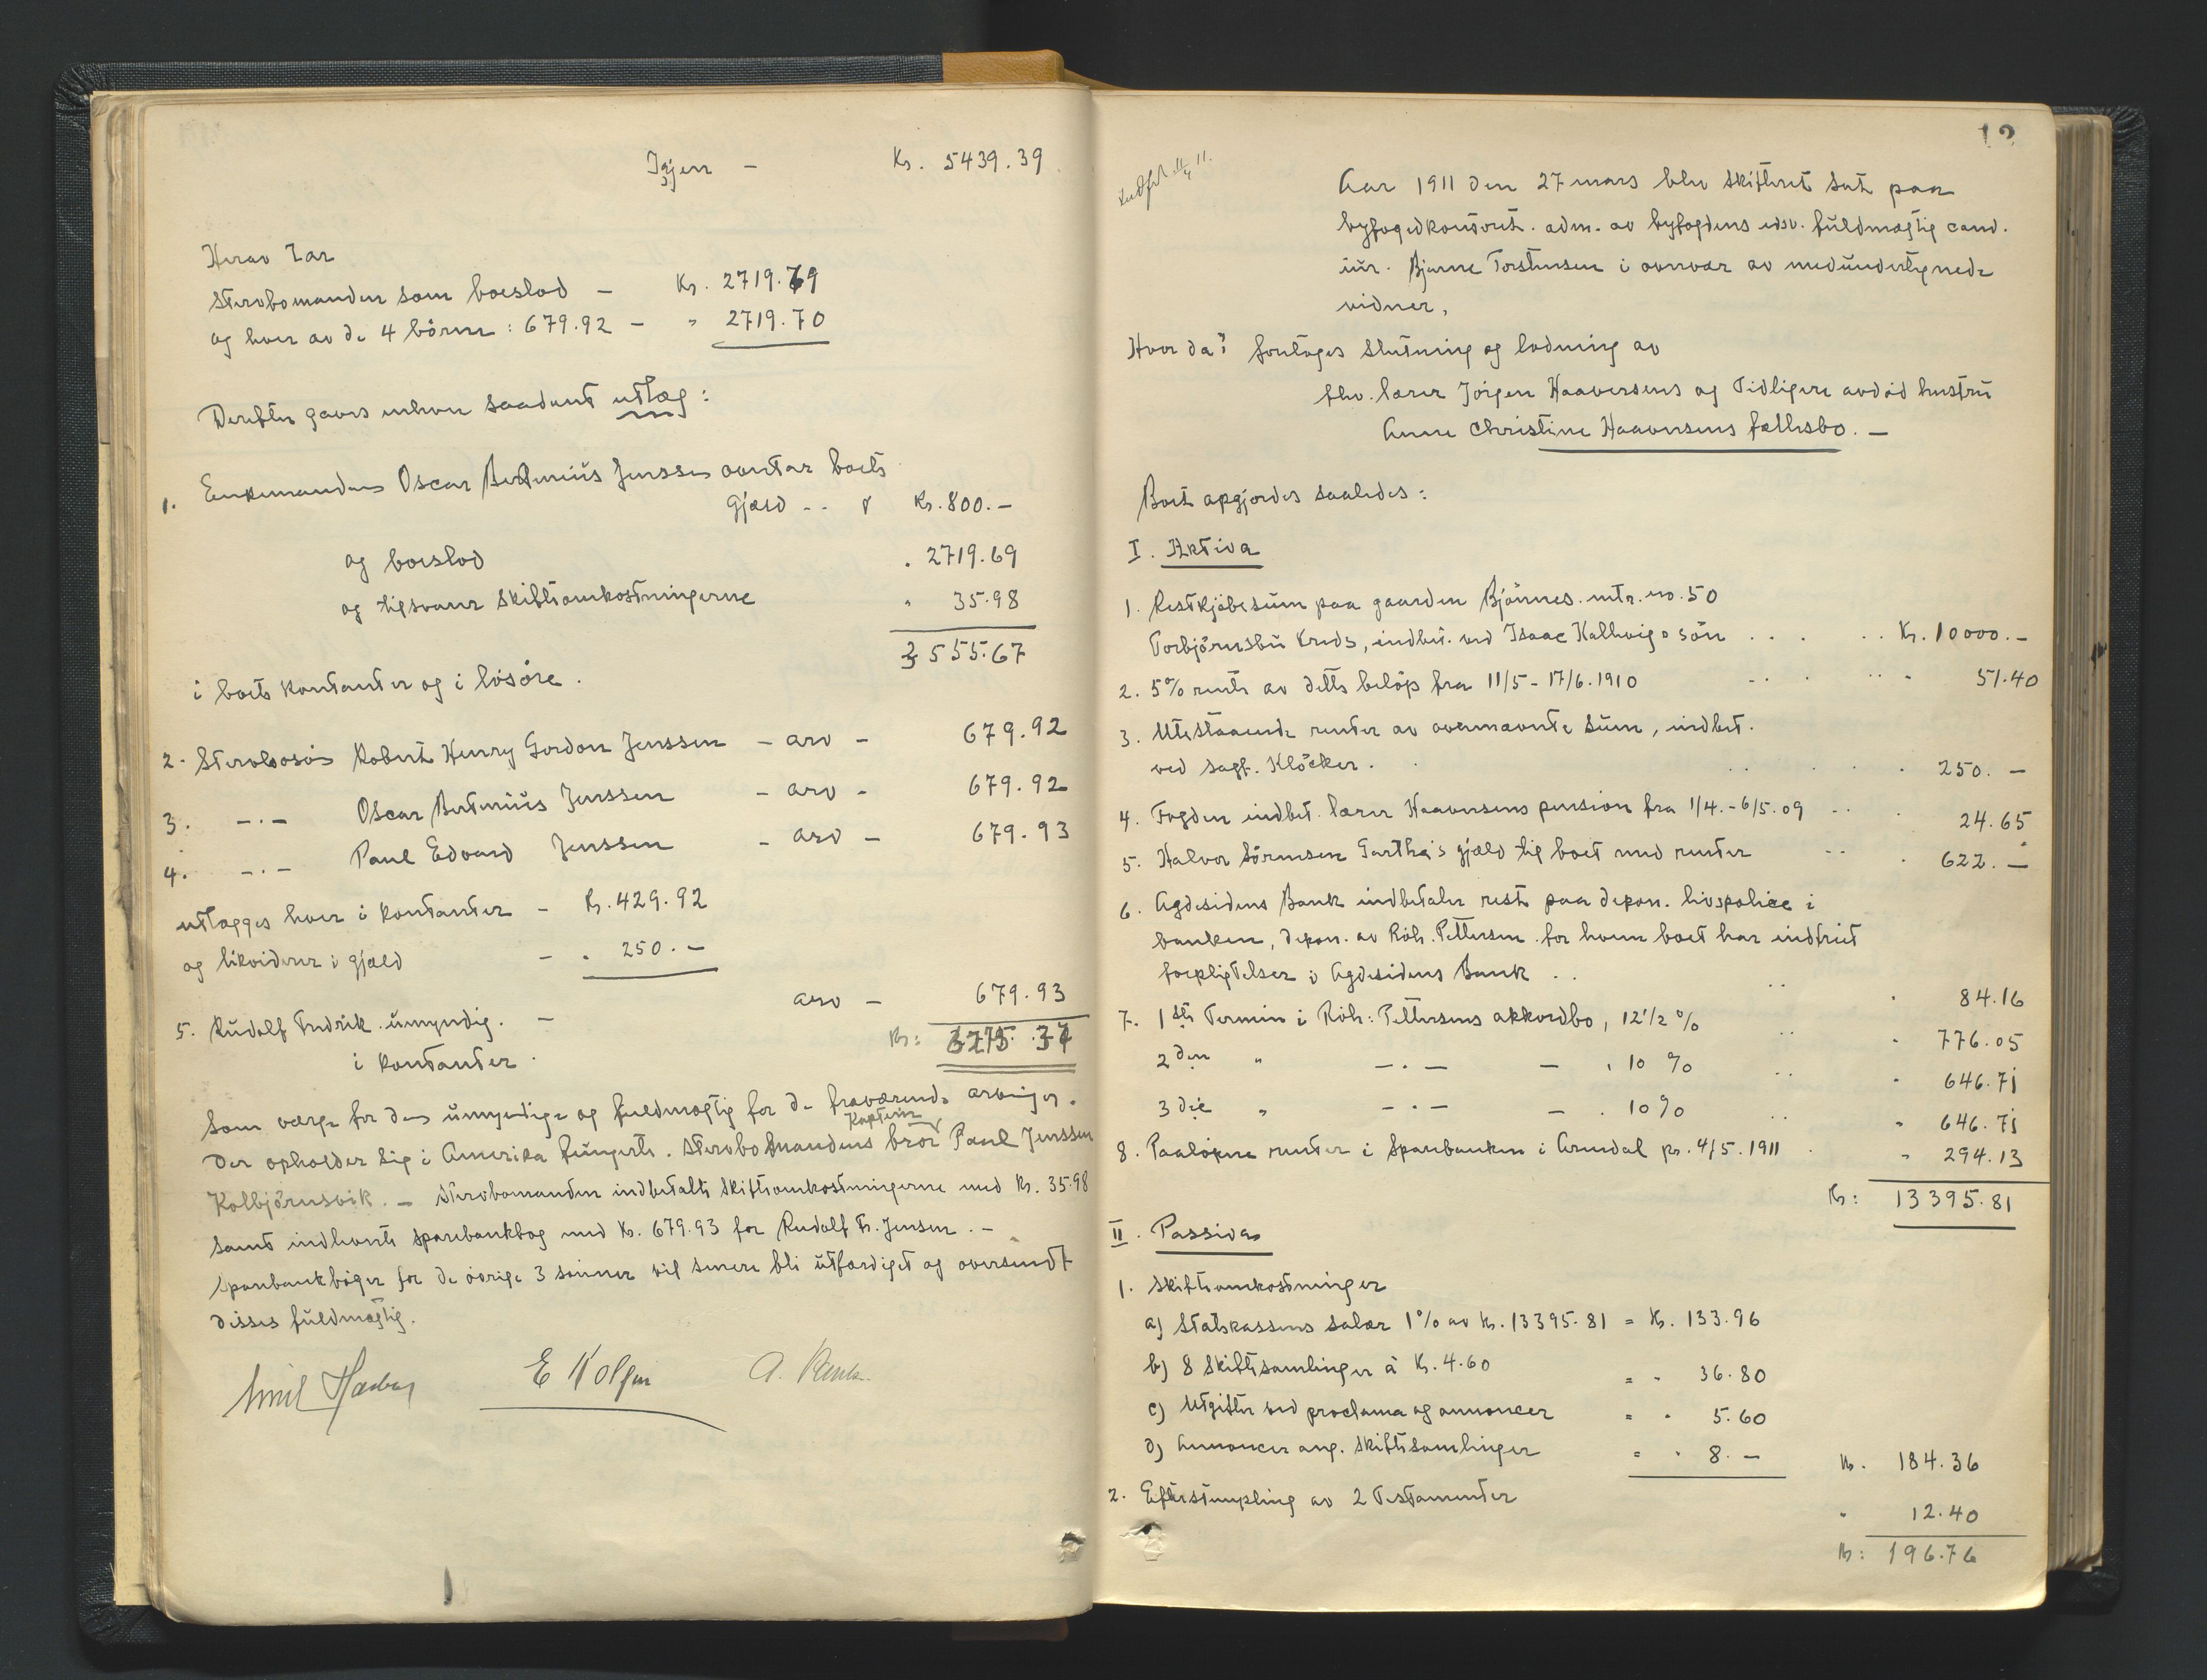 Igjen - Kr. 5439.39
Herav tar
Stervbomanden som boeslod - Kr. 2719.69
og hver av de 4 börn : 679.92 - " 2719.70
Derefter gaves enhver saadant utlæg :
1. Enkemanden Oscar Bertinius Jenssen overtar boets
gjæld . . Kr. 800.-
og boeslod " 2719.69
og tilsvarer skifteomkostningerne " 35.98
3555.67
i boets kontanter og i lösöre.
2. Stervbosön Robert Henry Gordon Jenssen - arv - 679.92
3. -.- Oscar Bertinius Jenssen - arv - 679.92
4. -.- Paul Edvard Jenssen - arv - 679.93
utlægges hver i kontanter - Kr. 429.92
og likviderer i gjæld - " 250.-
5. Rudolf Fredrik umyndig. - arv - 679.93
i kontanter. Kr: 6275.37
Som værge for den umyndige og fuldmægtig for de fraværende arvinger.
der opholder sig i Amerika fungerte. Stervbomandens bror Kaptein Paul Jenssen
Kolbjörnsvik. - Stervbomanden indbetalte skifteomkostningerne med Kr. 35.98
samt indleverte sparebankbog med Kr. 679.93 for Rudolf Fr. Jensen. -
Sparebankböger for de övrige 3 sönner vil senere bli utfærdiget og oversendt
disses fuldmægtig.
Emil E Kolfjen A.
12
11/4 11.
Aar 1911 den 27 mars blev skifteret sat paa
byfogedkontoret. adm. av byfogdens edsv. fuldmægtig cand.
jur. Bjarne Torstensen i overvær av medundertegnede
vidner.
Hvor da: foretages slutning og lodning av
fhv. lærer Jörgen Haavorsens og tidligere avdöd hustru
Anne Christine Haavorsens fællesbo. -
Boet opgjordes saaledes :
I. Aktiva
1. Restkjöbesum paa gaarden Bjönnes. mtr. no. 50
Torbjörnsbu kreds, indbet. ved Isaac Kallevig & sön . . . . Kr. 10000.-
2. 5% rente av dette belöp fra 11/5 - 17/6. 1910 . . . 51.40
3. Utestaaende renter av ovennævnte sum, indbet.
ved sagf. Klöcker . . 250.-
4. Fogden indbet. lærer Haavorsens pension fra 1/4. - 6/5. 09 . . 24.65
5. Halvor Sörensen Gartha's gjæld til boet med renter . . 622.-
6. Agdesidens Bank indbetaler rest paa depon. livspolice i
banken, depon. av Röh. Pettersen for hvem boet har indfriet
forpligtelser i Agdesidens Bank . . 84.16
7. 1ste Termin i Röh: Pettersens akkordbo, 12 1/2 % . . " 776.05
2den " -.- - , 10 % . . " 646.71
3die " -.- - . 10 % . . " 646.71
8. Paalöpne renter i Sparebanken i Arendal pr. 4/5. 1911 . " 294.13
Kr: 13395.81
II. Passiva
1. Skifteomkostninger
a) Statskassens salær 1% av Kr. 13395.81 = Kr. 133.96
b) 8 Skiftesamlinger á Kr. 4.60 = " 36.80
c) Utgifter ved proclama og annoncer = " 5.60
d) Annoncer ang. skiftesamlinger = " 8.- Kr. 184.36
2. Efterstempling av 2 Testamenter " 12.40
Kr: 196.76